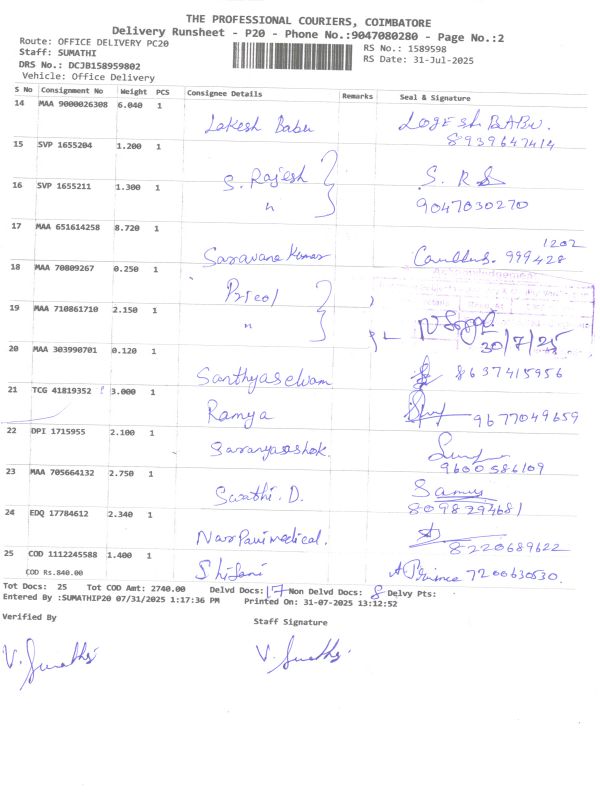 THE PROFESSIONAL COURIERS, COIMBATORE
Delivery Runsheet - P20 - Phone No.:9047080280 - Page No.:2
Route: OFFICE DELIVERY PC20
RS No.: 1589598
Staff: SUMATHI
RS Date: 31-Jul-2025
DRS No.: DCJB158959802
Vehicle: Office Delivery
S No Consignment No Weight PCS Consignee Details Remarks Seal & Signature
14 MAA 9000026308 6.040 1
Lokesh Babu LOGESH BABU.
8939647414
15 SVP 1655204 1.200 1
S. Rajesh S. R
16 SVP 1655211 1.300 1
" 9047030270
17 MAA 651614258 8.720 1
1202
Saravana Kumar 999428
18 MAA 70809267 0.250 1
Pricol
19 MAA 710861710 2.150 1
"
30/7/25
20 MAA 303990701 0.120 1
Santhyaselvam 8637415956
21 TCG 41819352 3.000 1
Ramya 9677049659
22 DPI 1715955 2.100 1
Saranyaashok.
9600586109
23 MAA 705664132 2.750 1
Swathi. D.
8098294681
24 EDQ 17784612 2.340 1
medical. 8220689622
25 COD 1112245588 1.400 1
COD Rs.840.00 Shifani 7200630530.
Tot Docs: 25 Tot COD Amt: 2740.00 Delvd Docs: 17 Non Delvd Docs: 8 Delvy Pts:
Entered By :SUMATHIP20 07/31/2025 1:17:36 PM Printed On: 31-07-2025 13:12:52
Verified By Staff Signature
V. Sumathi V. Sumathi